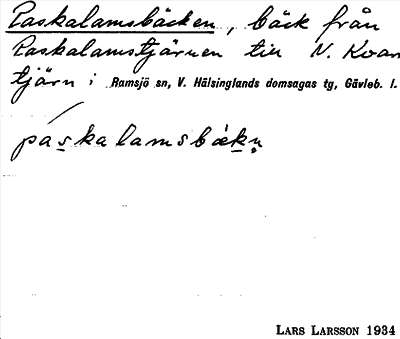 Paskalamsbäcken, bäck från
Paskalamstjärnen till N. Kvarn
tjärn i Ramsjö sn, V. Hälsinglands domsagas tg, Gävleb. l.
páskalamsbækn̥
LARS LARSSON 1934